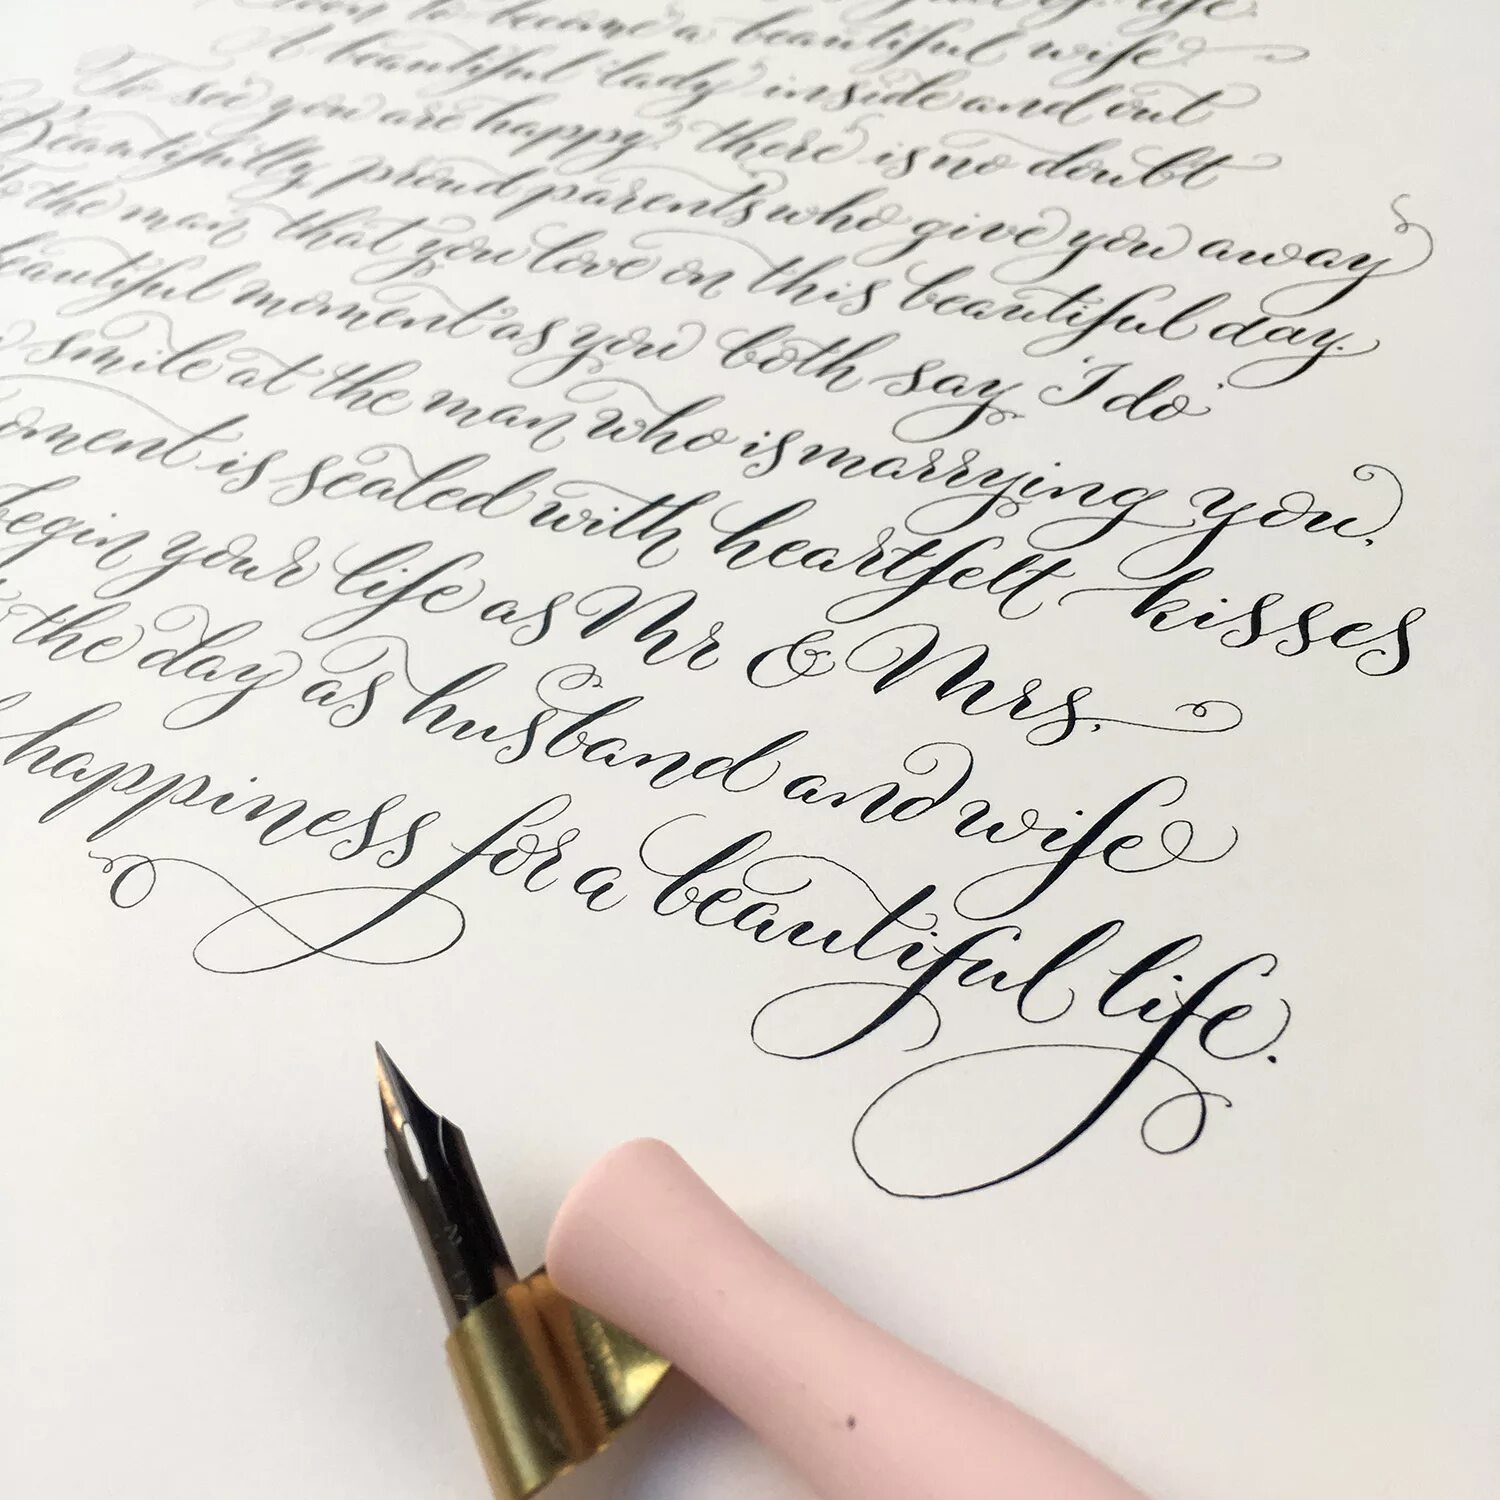 life
to become a beautiful wife
A beautiful lady inside and out
To see you are happy, there is no doubt
Beautifully proud parents who give you away
to the man that you love on this beautiful day.
beautiful moment as you both say 'I do'
smile at the man who is marrying you.
moment is sealed with heartfelt kisses
begin your life as Mr & Mrs.
the day as husband and wife
happiness for a beautiful life.